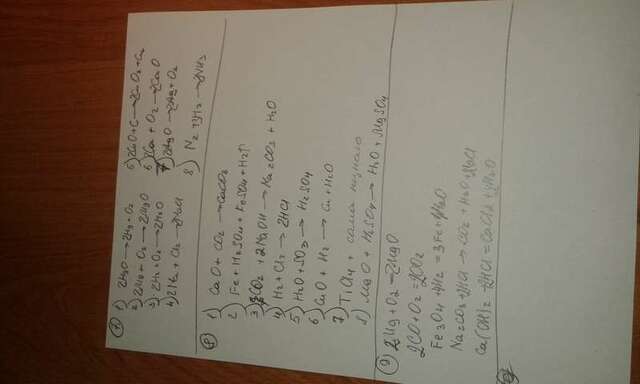 1) 2HgO → 2Hg + O2
2) 2Mg + O2 → 2MgO
3) 2H2 + O2 → 2H2O
4) 2Na + Cl2 → 2NaCl
5) 2CuO + C → CO2 + Cu
6) 2Ca + O2 → 2CaO
7) 2HgO → 2Hg + O2
8) N2 + 3H2 → 2NH3
8
1) CaO + CO2 → CaCO3
2) Fe + H2SO4 → FeSO4 + H2↑
3) CO2 + 2NaOH → Na2CO3 + H2O
4) H2 + Cl2 → 2HCl
5) H2O + SO3 → H2SO4
6) CuO + H2 → Cu + H2O
7) TiCl4 +
8) MgO + H2SO4 → H2O + MgSO4
9) 2Mg + O2 → 2MgO
2CO + O2 = 2CO2
Fe3O4 + 4H2 = 3Fe + 4H2O
Na2CO3 + 2HCl → CO2 + H2O + 2NaCl
Ca(OH)2 + 2HCl = CaCl2 + 2H2O